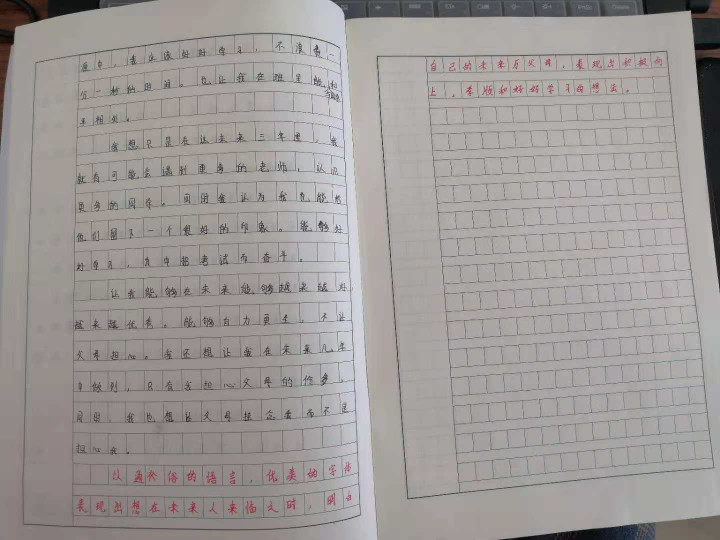 意中，我应该好好学习，不浪费一
分一秒的时准。也让我在班里能和
平相处。
我想只是在这未来三年里，我
就有可能会遇到更多的老师，认识
更多的同学。同时我认为我也能给
他们留下一个很好的印象。能够好
好学习，为中招考试而奋斗。
让我能够在未来能够越来越好，
越来越优秀。能够自力更生，不让
父母担心。我还想让我在未来几年
中做到，只有我担心父母的份，
同时，我也想让父母挂念我而不是
担心我。
以通俗的语言，优美的字体
表现出想在未来人来临之时，明白
自己的未来与父母，表现出积极向
上，孝顺和好好学习的想法。